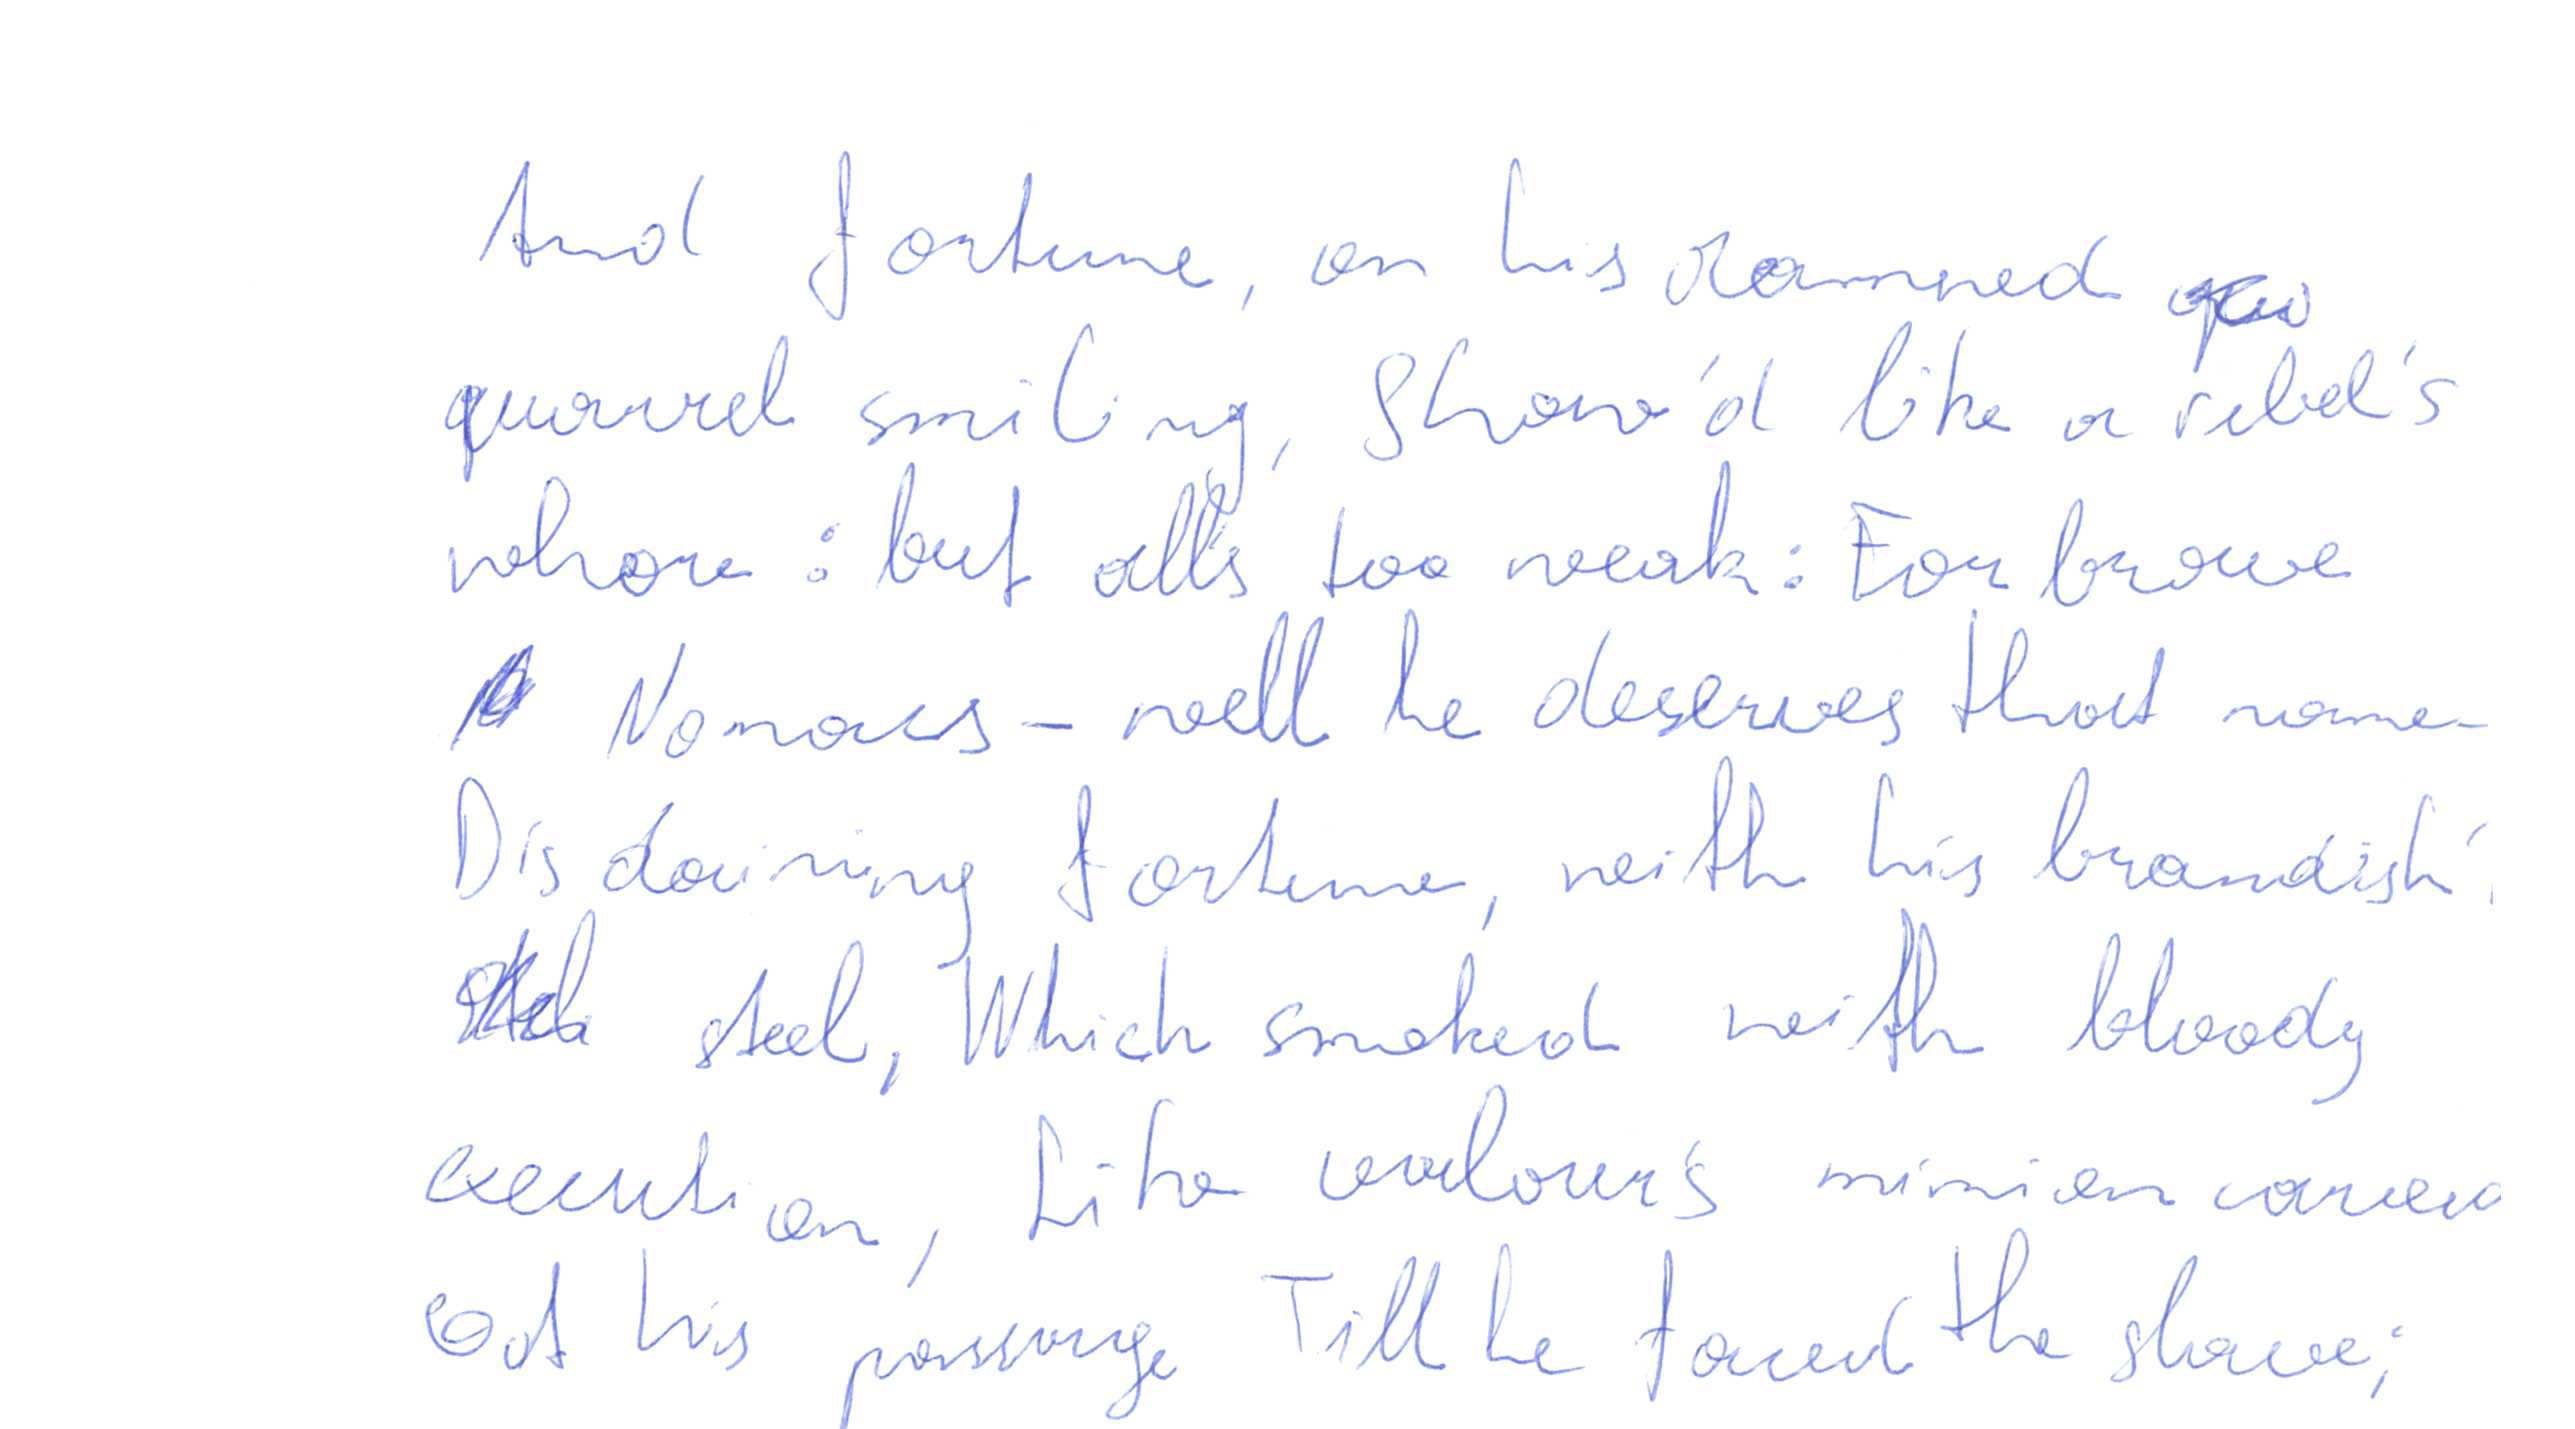 And fortune, on his damned
quarrel smiling, Show'd like a rebel's
whore: but all's too weak: For brave
Nomacs - well he deserves that name-
Disdaining fortune, with his brandish'
steel, Which smoked with bloody
execution, Like valour's minion carved
Out his passage Till he faced the slave;